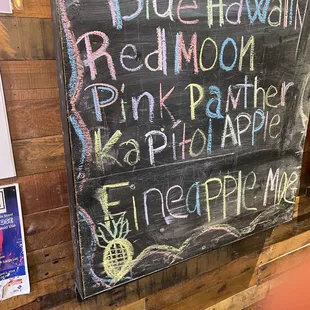 Blue Hawaiian
Red Moon
Pink Panther
Kapitol Apple
Fineapple